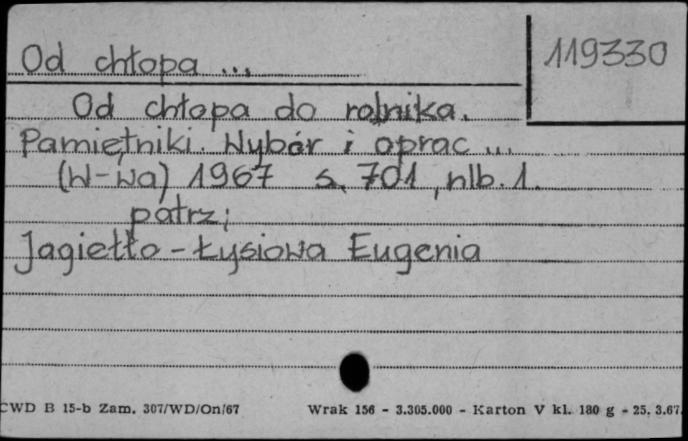 Od chłopa ...
119330
Od chłopa do rolnika.
Pamiętniki. Wybór i oprac ...
(W-wa) 1967 s. 701, nlb. 1.
patrz:
Jagiełło-Łysiowa Eugenia
CWD B 15-b Zam. 307/WD/On/67 Wrak 156 - 3.305.000 - Karton V kl. 180 g - 25. 3.67.